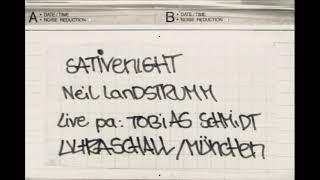 A • DATE / TIME
• NOISE REDUCTION
B • DATE / TIME
• NOISE REDUCTION
SATiVENiGHT
NeiL LanDSTRUMM
Live pa: TOBiAS SCHMiDT
ULTRASCHALL/MüNCHEN